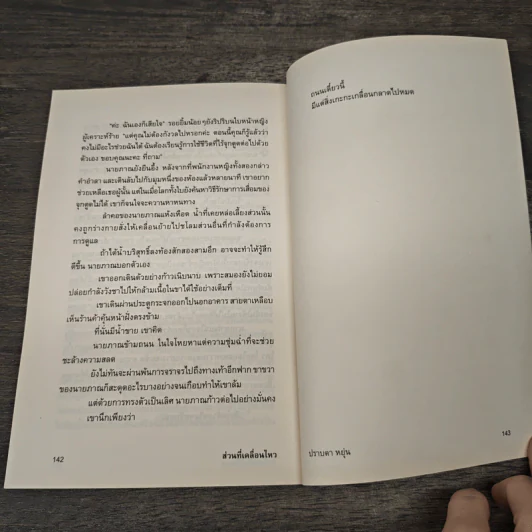 "ค่ะ ฉันเองก็เสียใจ" รอยยิ้มน้อยๆ ยังริบรี่บนใบหน้าหญิง
ผู้เคราะห์ร้าย "แต่คุณไม่ต้องกังวลไปหรอกค่ะ ตอนนี้คุณก็รู้แล้วว่า
คงไม่มีอะไรช่วยฉันได้ ฉันต้องเรียนรู้การใช้ชีวิตที่ไร้จุกดูดต่อไปด้วย
ตัวเอง ขอบคุณนะคะ ที่ถาม"
นายภาณยังยืนอึ้ง หลังจากที่พนักงานหญิงทั้งสองกล่าว
คำอำลา และเดินลับไปกับมุมหนึ่งของห้องแล้วหลายนาที เขาอยาก
ช่วยเหลือเธอผู้นั้น แต่ในเมื่อโลกทั้งใบยังค้นหาวิธีรักษาการเสื่อมของ
จุกดูดไม่ได้ เขาก็จนใจจะควานหาหนทาง
ลำคอของนายภาณแห้งเหือด น้ำที่เคยหล่อเลี้ยงส่วนนั้น
คงถูกร่างกายสั่งให้เคลื่อนย้ายไปชโลมส่วนอื่นที่กำลังต้องการ
การดูแล
ถ้าได้น้ำบริสุทธิ์ลงท้องสักสองสามอึก อาจจะทำให้รู้สึก
ดีขึ้น นายภาณบอกตัวเอง
เขาออกเดินด้วยย่างก้าวเนิบนาบ เพราะสมองยังไม่ยอม
ปล่อยกำลังวังชาไปให้กล้ามเนื้อในขาได้ใช้อย่างเต็มที่
เขาเดินผ่านประตูกระจกออกไปนอกอาคาร สายตาเหลือบ
เห็นร้านค้าคุ้นหน้าฝั่งตรงข้าม
ที่นั่นมีน้ำขาย เขาคิด
นายภาณข้ามถนน ในใจโหยหาแต่ความชุ่มฉ่ำที่จะช่วย
ชะล้างความสลด
ยังไม่ทันจะผ่านพ้นการจราจรไปถึงทางเท้าอีกฟาก ขาขวา
ของนายภาณก็สะดุดอะไรบางอย่างจนเกือบทำให้เขาล้ม
แต่ด้วยการทรงตัวเป็นเลิศ นายภาณก้าวต่อไปอย่างมั่นคง
เขานึกเพียงว่า
142
ส่วนที่เคลื่อนไหว
ถนนเดี๋ยวนี้
มีแต่สิ่งเกะกะเกลื่อนกลาดไปหมด
143
ปราบดา หยุ่น